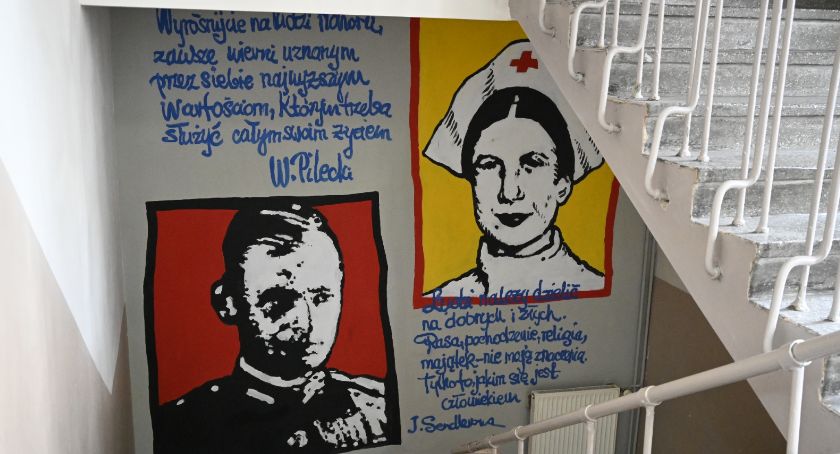 Wyrośnijcie na ludzi honoru,
zawsze wierni uznanym
przez siebie najwyższym
wartościom, którym trzeba
służyć całym swoim życiem
W. Pilecki
Ludzi należy dzielić
na dobrych i złych.
Rasa, pochodzenie, religia,
majątek - nie mają znaczenia.
tylko to, jakim się jest
człowiekiem
J. Sendlerowa